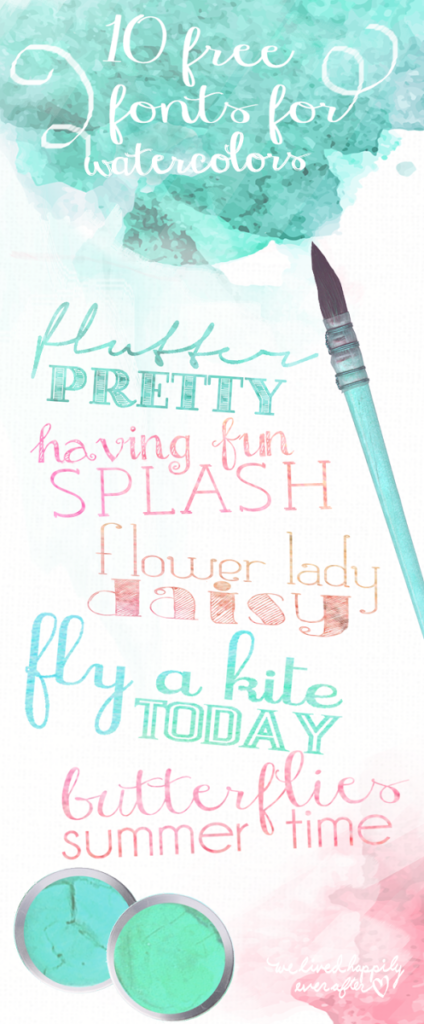 10 free
fonts for
watercolors
flutter
PRETTY
having fun
SPLASH
flower lady
daisy
fly a kite
TODAY
butterflies
summer time
we lived happily
ever after